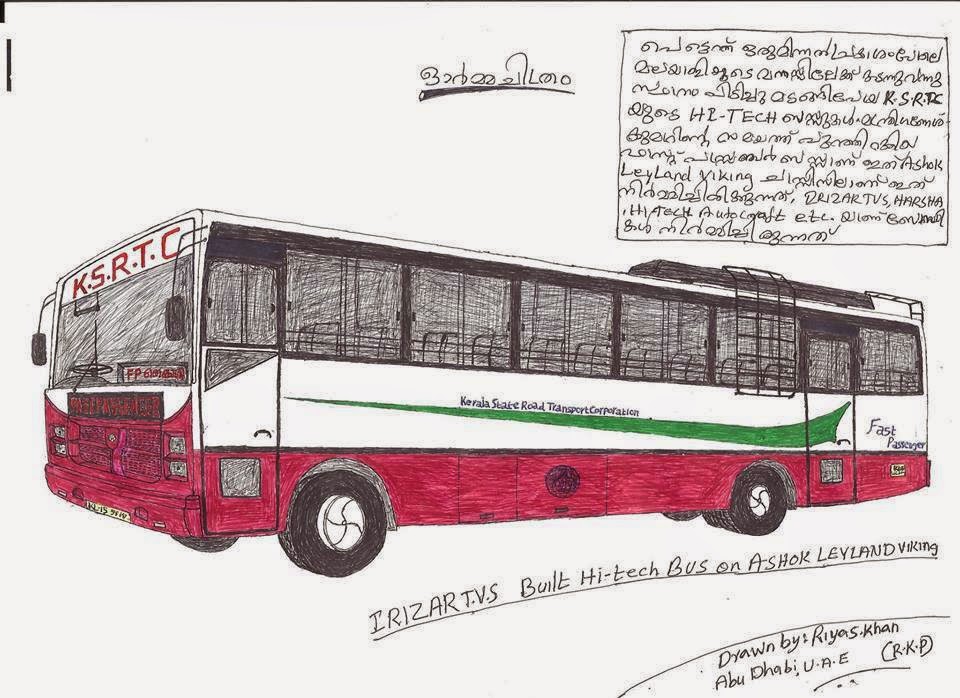 ഓർമ്മചിത്രം
പെട്ടെന്ന് ഒരു മിന്നൽ പ്രകാശം പോലെ
മലയാളിയുടെ മനസ്സിലേക്ക് കടന്നുവന്നു
സ്ഥാനം പിടിച്ചു മടങ്ങിപോയ K.S.R.T.C
യുടെ HI-TECH ബസ്സുകൾ. മന്ത്രി ഗണേശ്
കുമാറിന്റെ സമയത്ത് പുറത്തിറക്കിയ
ഫാസ്റ്റ് പാസ്സഞ്ചർ ബസ്സാണ് ഇത് Ashok
Leyland Viking ചാസ്സിസിലാണ് ഇത്
നിർമ്മിച്ചിരിക്കുന്നത്. IRIZAR TVS, HARSHA
, HI TECH Autocraft etc. യാണ് ബോഡി
കൾ നിർമ്മിച്ചിരുന്നത്
K.S.R.T.C
FP
FAST PASSENGER
KL-15
Kerala State Road Transport Corporation
Fast
Passenger
IRIZAR T.V.S Built Hi-tech BUS on ASHOK LEYLAND VIKING
Drawn by: Riyas.Khan
Abu Dhabi, U.A.E (R.K.P)